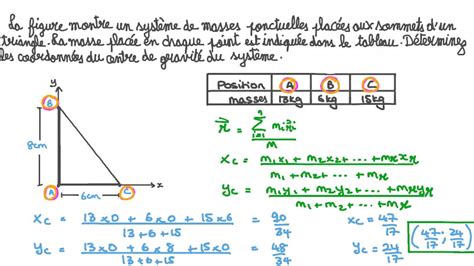 La figure montre un système de masses ponctuelles placées aux sommets d'un
triangle. La masse placée en chaque point est indiquée dans le tableau. Déterminez
les coordonnées du centre de gravité du système.
Position A B C
masses 13kg 6kg 15kg
y
B
8cm
A
6cm
C
x
r⃗ = Σ mᵢr⃗ᵢ / M
n
i=1
x_C = m₁x₁ + m₂x₂ + ... + mₙxₙ / m₁ + m₂ + ... + mₙ
y_C = m₁y₁ + m₂y₂ + ... + mₙyₙ / m₁ + m₂ + ... + mₙ
x_C = 13×0 + 6×0 + 15×6 / 13+6+15 = 90/34
x_C = 47/17
y_C = 13×0 + 6×8 + 15×0 / 13+6+15 = 48/34
y_C = 24/17
(47/17 ; 24/17)